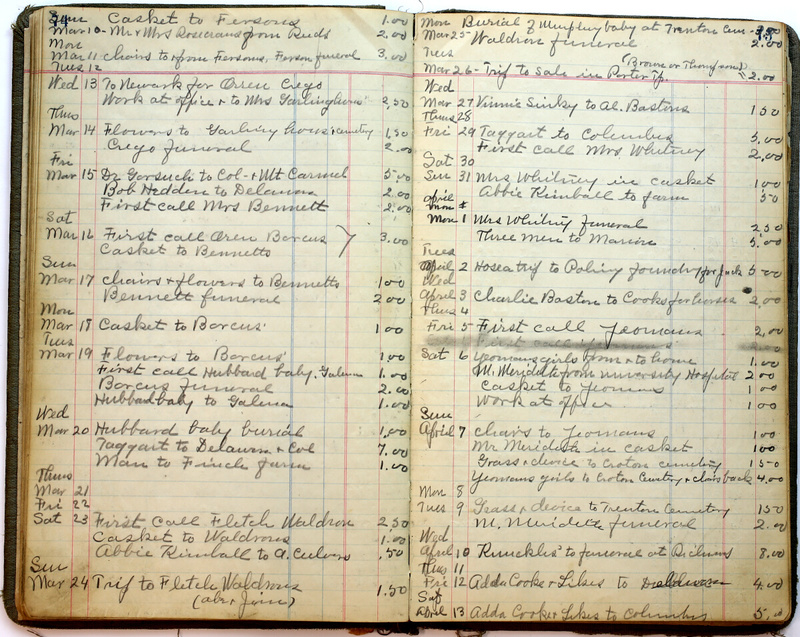 Sun Casket to Fersons 1.00
Mar 10 - Mr & Mrs Rosecrans from Buds 2.00
Mon
Mar 11 chairs to & from Fersons, Ferson funeral 3.00
Tues 12
Wed 13 To Newark for Oren Crego
Work at office & to Mrs Garlinghous 2,50
Thus
Mar 14 Flowers to house & cemetry 1,50
Crego funeral 2.00
Fri
Mar 15 Dr Gorsuch to Col - & Mt Carmel 5.00
Bob Hedden to Delaware 2.00
First call Mrs Bennett 2.00
Sat
Mar 16 First call Oren Borcus 3.00
Casket to Bennetts
Sun
Mar 17 chairs & flowers to Bennetts 1 00
Bennett funeral 2 00
Mon
Mar 18 Casket to Borcus' 1 00
Tues
Mar 19 Flowers to Borcus' 1,00
First call Hubbard baby, Galena 1.00
Borcus funeral 2.00
Hubbard baby to Galena 1.00
Wed
Mar 20 Hubbard baby burial 1,00
Taggart to Delaware & Col 7.00
Man to Finch farm 1.00
Thus
Mar 21
Fri 22
Sat 23 First call Fletch Waldron 2,50
Casket to Waldrons 1.00
Abbie Kimball to A. Culvers .50
Sun
Mar 24 Trip to Fletch Waldrons 1.50
Mon Burial of Murphey baby at Trenton Cem
Mar 25 Waldron funeral 2.00
Tues (Brown or Thompson)
Mar 26 - Trip to Sale in Porter Tp. 2.00
Wed
Mar 27 Vinnie Sinky to Al. Bastons 1 50
Thus 28
Fri 29 Taggart to Columbus 5,00
First call Mrs. Whitney 2,00
Sat 30
Sun 31 Mrs Whitney in casket 1 00
Abbie Kimball to farm 50
April
Mon 1 Mrs Whitney funeral 2 50
Three men to Marion 5,00
Tues
April 2 Hosea trip to foundry for Jack 5 00
Wed
April 3 Charlie Baston to Cooks for horses 2,00
Thus 4
Fri 5 First call Yeomans 2,00
First call Yeomans 2.00
Sat 6 Yeomans girls from & to home 1.00
M. Meridith from university Hospital 2 00
Casket to Yeomans 1 00
Work at office 1 00
Sun
April 7 chairs to Yeomans 1 00
Mr Meridith in casket 1 00
Grass & device to Croton cemetery 1 50
Yeomans girls to Croton Cemetry & chairs back 4.00
Mon 8
Tues 9 Grass & device to Trenton Cemetery 1 50
M. Meridith funeral 2.00
Wed
April 10 to funeral at 8.00
Thus 11
Fri 12 Adda Cooke & Likes to Delaware 4.00
Sat
April 13 Adda Cooke & Likes to Columbus